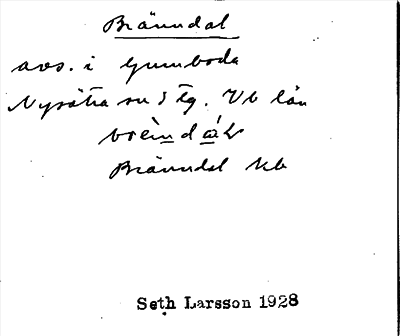 Bränndal
avs. i Gumboda
Nysätra sn 5 tg. Vb län
Bränndal kb
Seth Larsson 1928